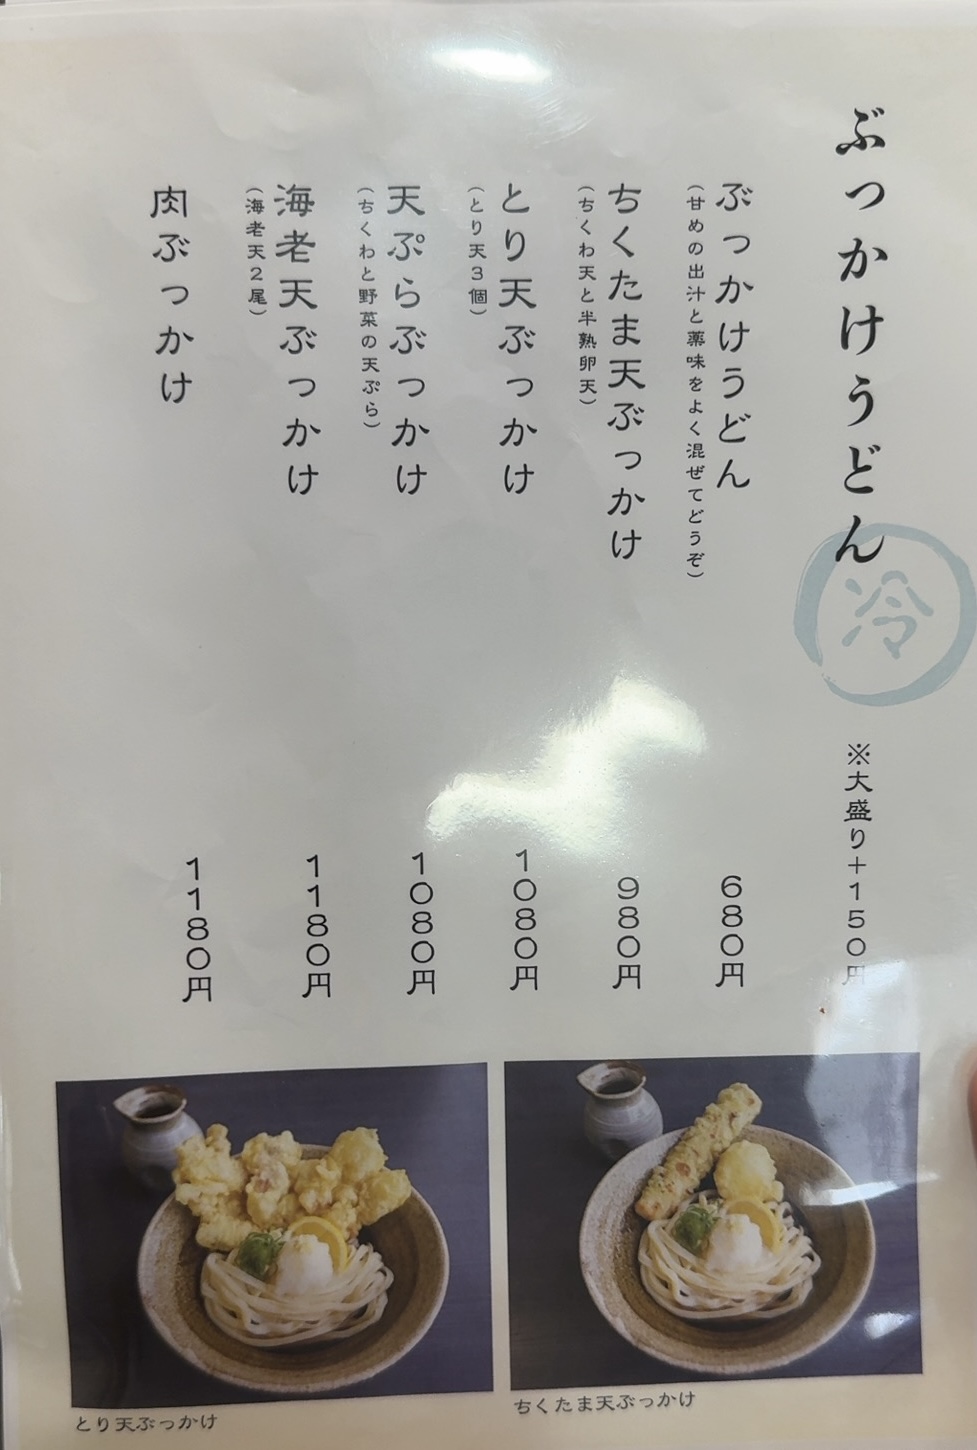 ぶっかけうどん
冷
※大盛り+150円
ぶっかけうどん
(甘めの出汁と薬味をよく混ぜてどうぞ)
680円
ちくたま天ぶっかけ
(ちくわ天と半熟卵天)
980円
とり天ぶっかけ
(とり天3個)
1080円
天ぷらぶっかけ
(ちくわと野菜の天ぷら)
1080円
海老天ぶっかけ
(海老天2尾)
1180円
肉ぶっかけ
1180円
ちくたま天ぶっかけ
とり天ぶっかけ